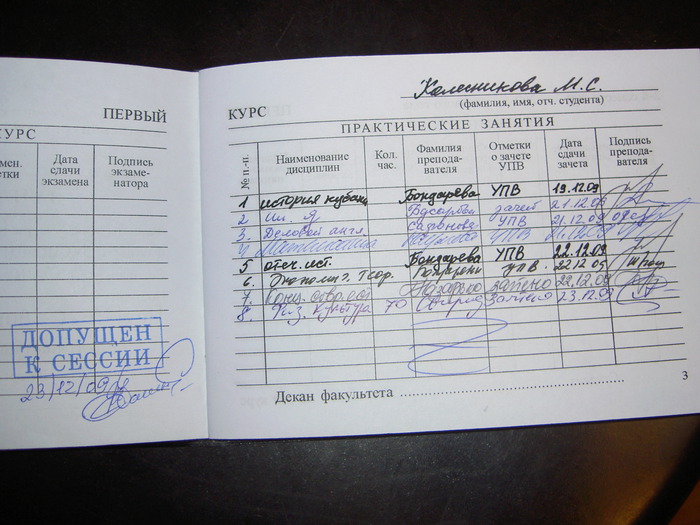 ПЕРВЫЙ
КУРС
мен.
тки
Дата
сдачи
экзамена
Подпись
экзаме-
натора
ДОПУЩЕН
К СЕССИИ
23/12/09
КУРС
Колесникова М.С.
(фамилия, имя, отч. студента)
ПРАКТИЧЕСКИЕ ЗАНЯТИЯ
№ п.-п.
Наименование
дисциплин
Кол.
час.
Фамилия
препода-
вателя
Отметки
о зачете
УПВ
Дата
сдачи
зачета
Подпись
препода-
вателя
1 история кубани Бондарева УПВ 19.12.09
2. Ин. Яз. зачет 21.12.09
3. Деловой англ. УПВ 21.12.09
4. Математика УПВ
5 отеч. ист. Бондарева УПВ 22.12.09
6. Эконом. теор. УПВ. 22.12.09
7. зачтено 22.12.09
8. Физ. культура 70 зачтено 23.12.09
Декан факультета
3